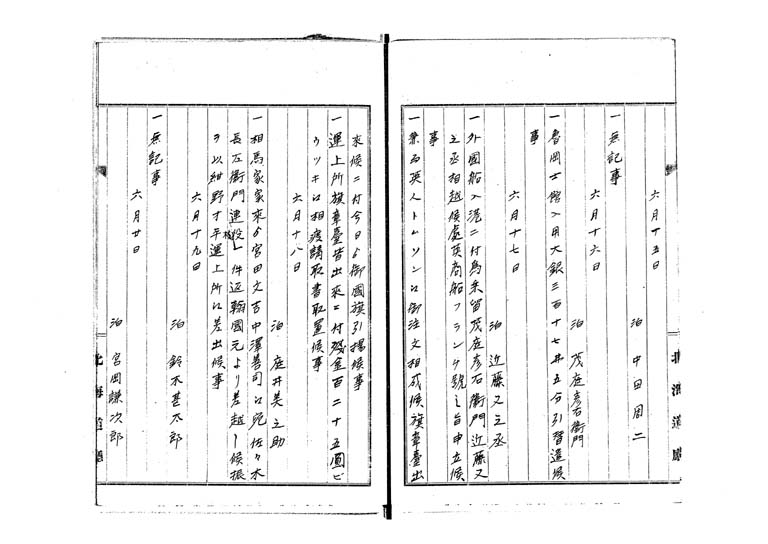 六月十五日
泊 中田周二
一無記事
六月十六日
泊 茂庭彦右衛門
一魯岡士館入用大銀三百十七弗五分引替遣候
事
六月十七日
泊 近藤又之丞
一外國船入港ニ付為乗留茂庭彦右衛門近藤又
之丞相越候處英商船フランケ號之旨申立候
事
一兼而英人トムソンロ御注文相成候旗章臺出
来候ニ付今日ゟ御國旗引揚候事
一運上所旗章臺皆出来ニ付殘金百二十五圓ビ
ウツキロ相渡請取書取置候事
六月十八日
泊 庭井美之助
一相馬家家来ゟ宮田文吉中澤善司ロ宛佐々木
長左衛門連役一件返翰國元より差越し候振
ヲ以紺野才平運上所ロ差出候事
六月十九日
泊 鈴木甚太郎
一無記事
六月廿日
泊 宮岡謙次郎
北海道廳